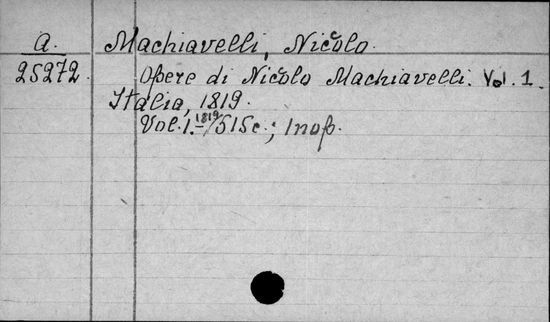 A. Machiavelli, Nicolo.
25272. Opere di Nicolo Machiavelli. Vol. 1.
Italia, 1819.
Vol. 1. – 1819/515c.; 1 нор.